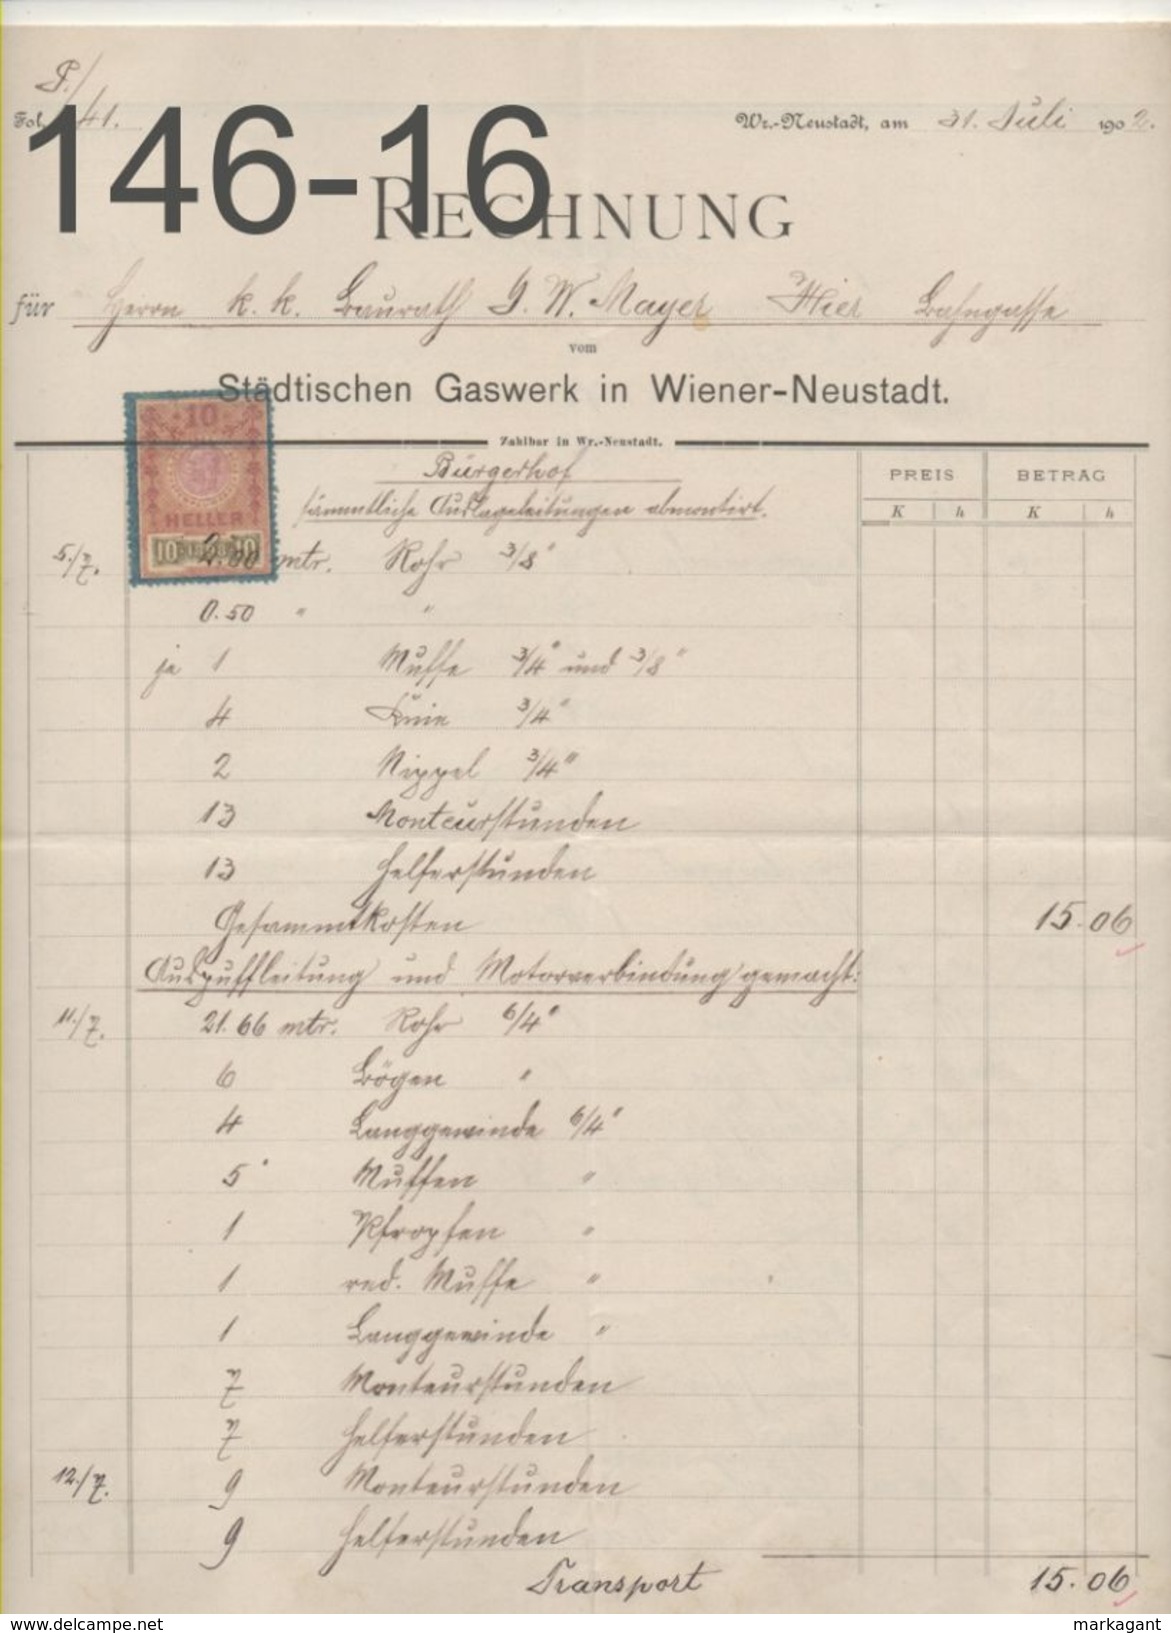 P./
Fol. 41.
Wr.-Neustadt, am 31. Juli 1902.
146-16
RECHNUNG
für Herrn k. k. Baurath J. W. Mayer Hier Bahngasse
vom
Städtischen Gaswerk in Wiener-Neustadt.
Zahlbar in Wr.-Neustadt.
10
HELLER
10 1898 10
PREIS BETRAG
K h K h
Bürgerhof
sämmtliche Auslageleitungen abmontirt.
5./7. 2.00 mtr. Rohr 3/8"
0.50 " "
je 1 Muffe 3/4" und 3/8"
4 Knie 3/4"
2 Nippel 3/4"
13 Monteurstunden
13 Helferstunden
Gesammtkosten 15.06
Auspuffleitung und Motorverbindung gemacht:
11./7. 21.66 mtr. Rohr 6/4"
6 Bögen "
4 Langgewinde 6/4"
5 Muffen "
1 Pfropfen "
1 red. Muffe "
1 Langgewinde "
7 Monteurstunden
7 Helferstunden
12./7. 9 Monteurstunden
9 Helferstunden
Transport 15.06
www.delcampe.net markagant